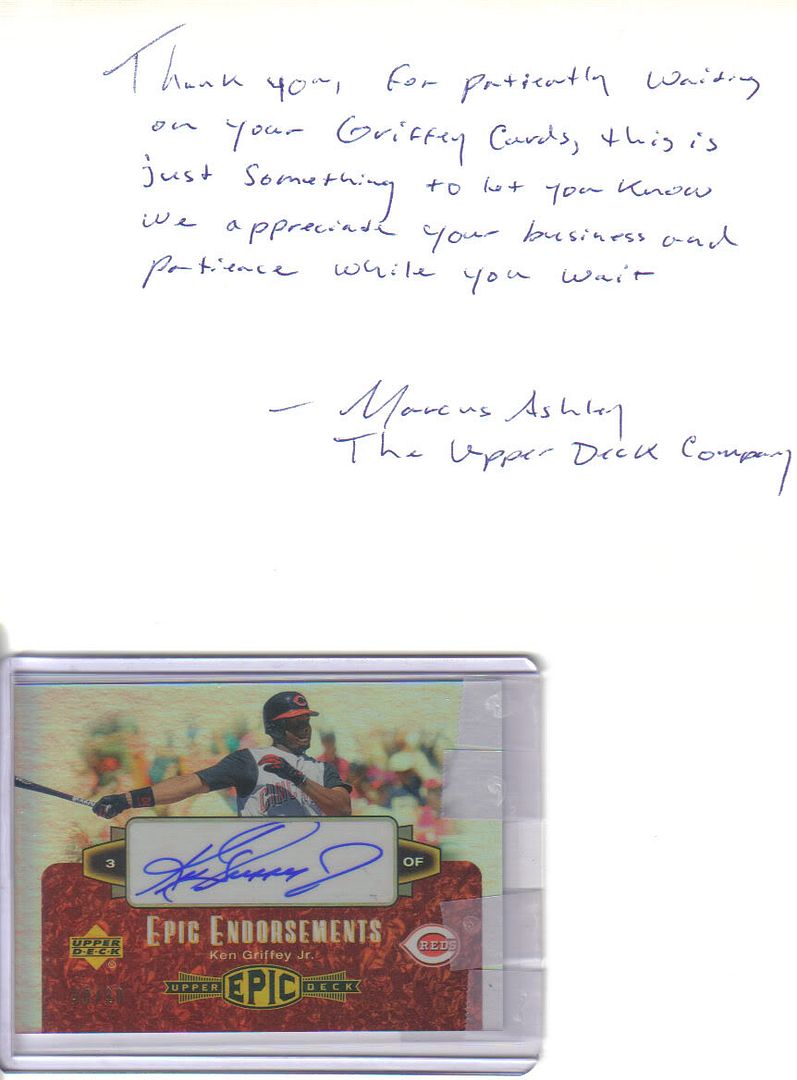 Thank you, for patiently waiting
on your Griffey Cards, this is
just something to let you know
we appreciate your business and
patience while you wait
– Marcus Ashley
The Upper Deck Company
3 OF
Ken Griffey Jr
EPIC ENDORSEMENTS
UPPER DECK
REDS
Ken Griffey Jr.
UPPER EPIC DECK